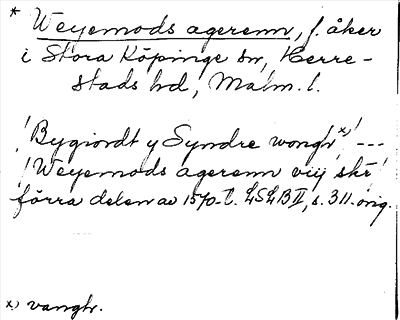 * Weyemods agerenn, f. åker
i Stora Köpinge sn, Herre-
stads hd, Malm. l.
! Bygiordt y Syndre wongh x) ! ---
! Weyemods agerenn viij skr !
förra delen av 1570-t. LSLB II, s. 311. orig.
x) vangh.